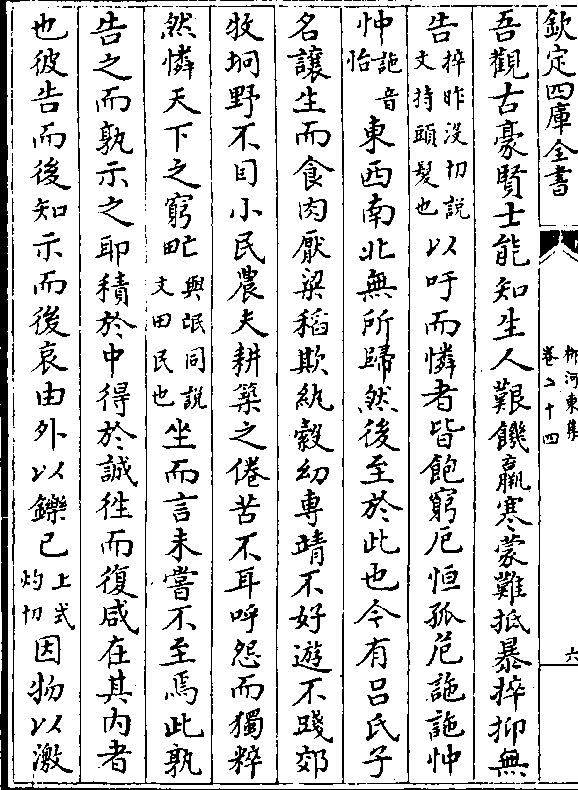 欽定四庫全書
柳河東集
卷二十四
六
吾觀古豪賢士能知生人艱饑羸寒蒙難抵暴捽抑無
告捽昨沒切說文持頭髮也以吁而憐者皆飽窮厄恒孤危詑詑忡
忡詑音怡東西南北無所歸然後至於此也今有呂氏子
名讓生而食肉厭粱稻欺紈縠幼専靖不好遊不踐郊
牧坰野不目小民農夫耕築之倦苦不耳呼怨而獨粹
然憐天下之窮甿與氓同說文田民也坐而言未嘗不至焉此孰
告之而孰示之耶積於中得於誠徃而復咸在其内者
也彼告而後知示而後哀由外以鑠己上式灼切因物以激